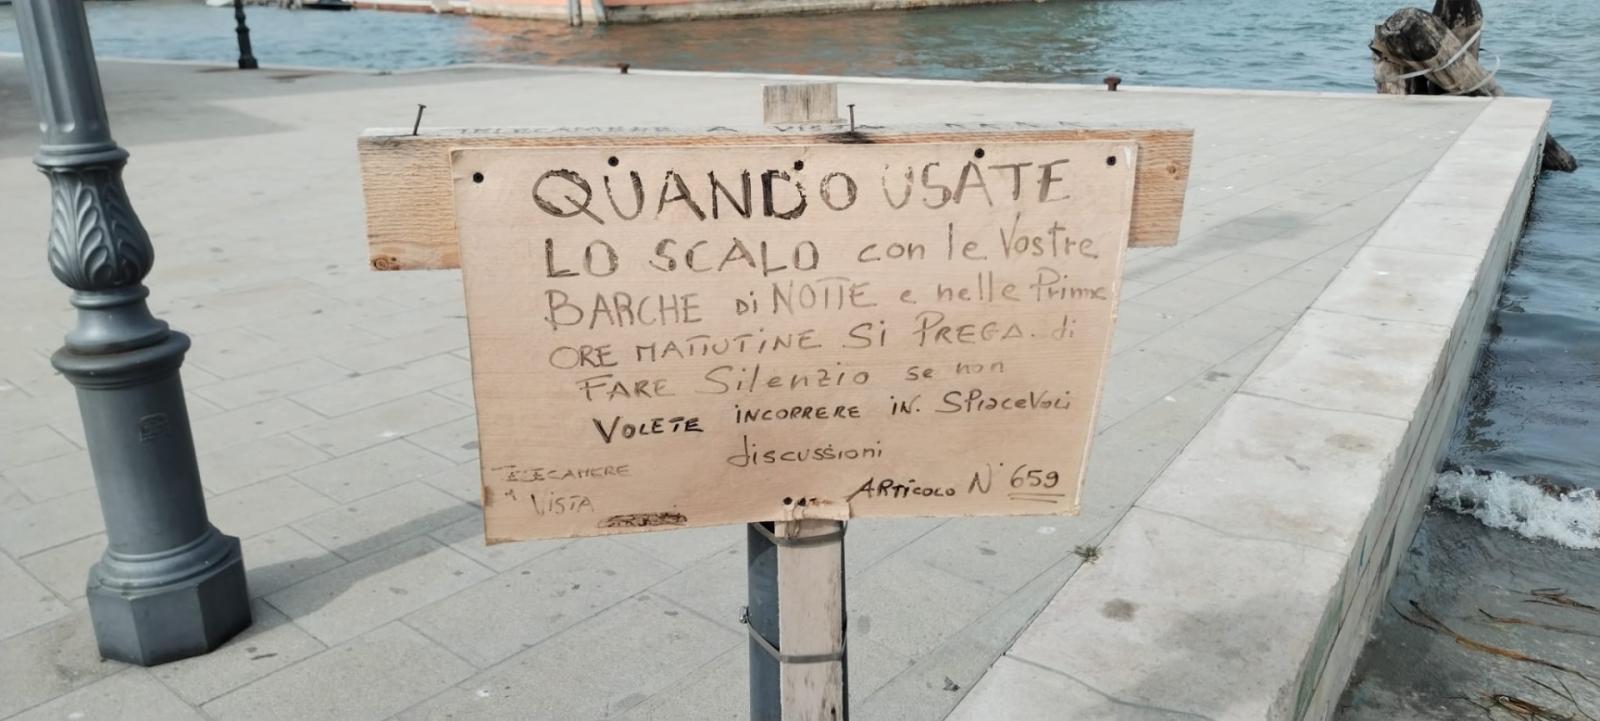 TELECAMERE A VISTA
QUANDO USATE
LO SCALO con le Vostre
BARCHE di NOTTE e nelle Prime
ORE MATTUTINE Si PREGA. di
FARE Silenzio se non
VOLETE iNCORRERE iN. SPiaceVoli
discussioni
TELECAMERE
A VISTA
ARTiCOLO N° 659